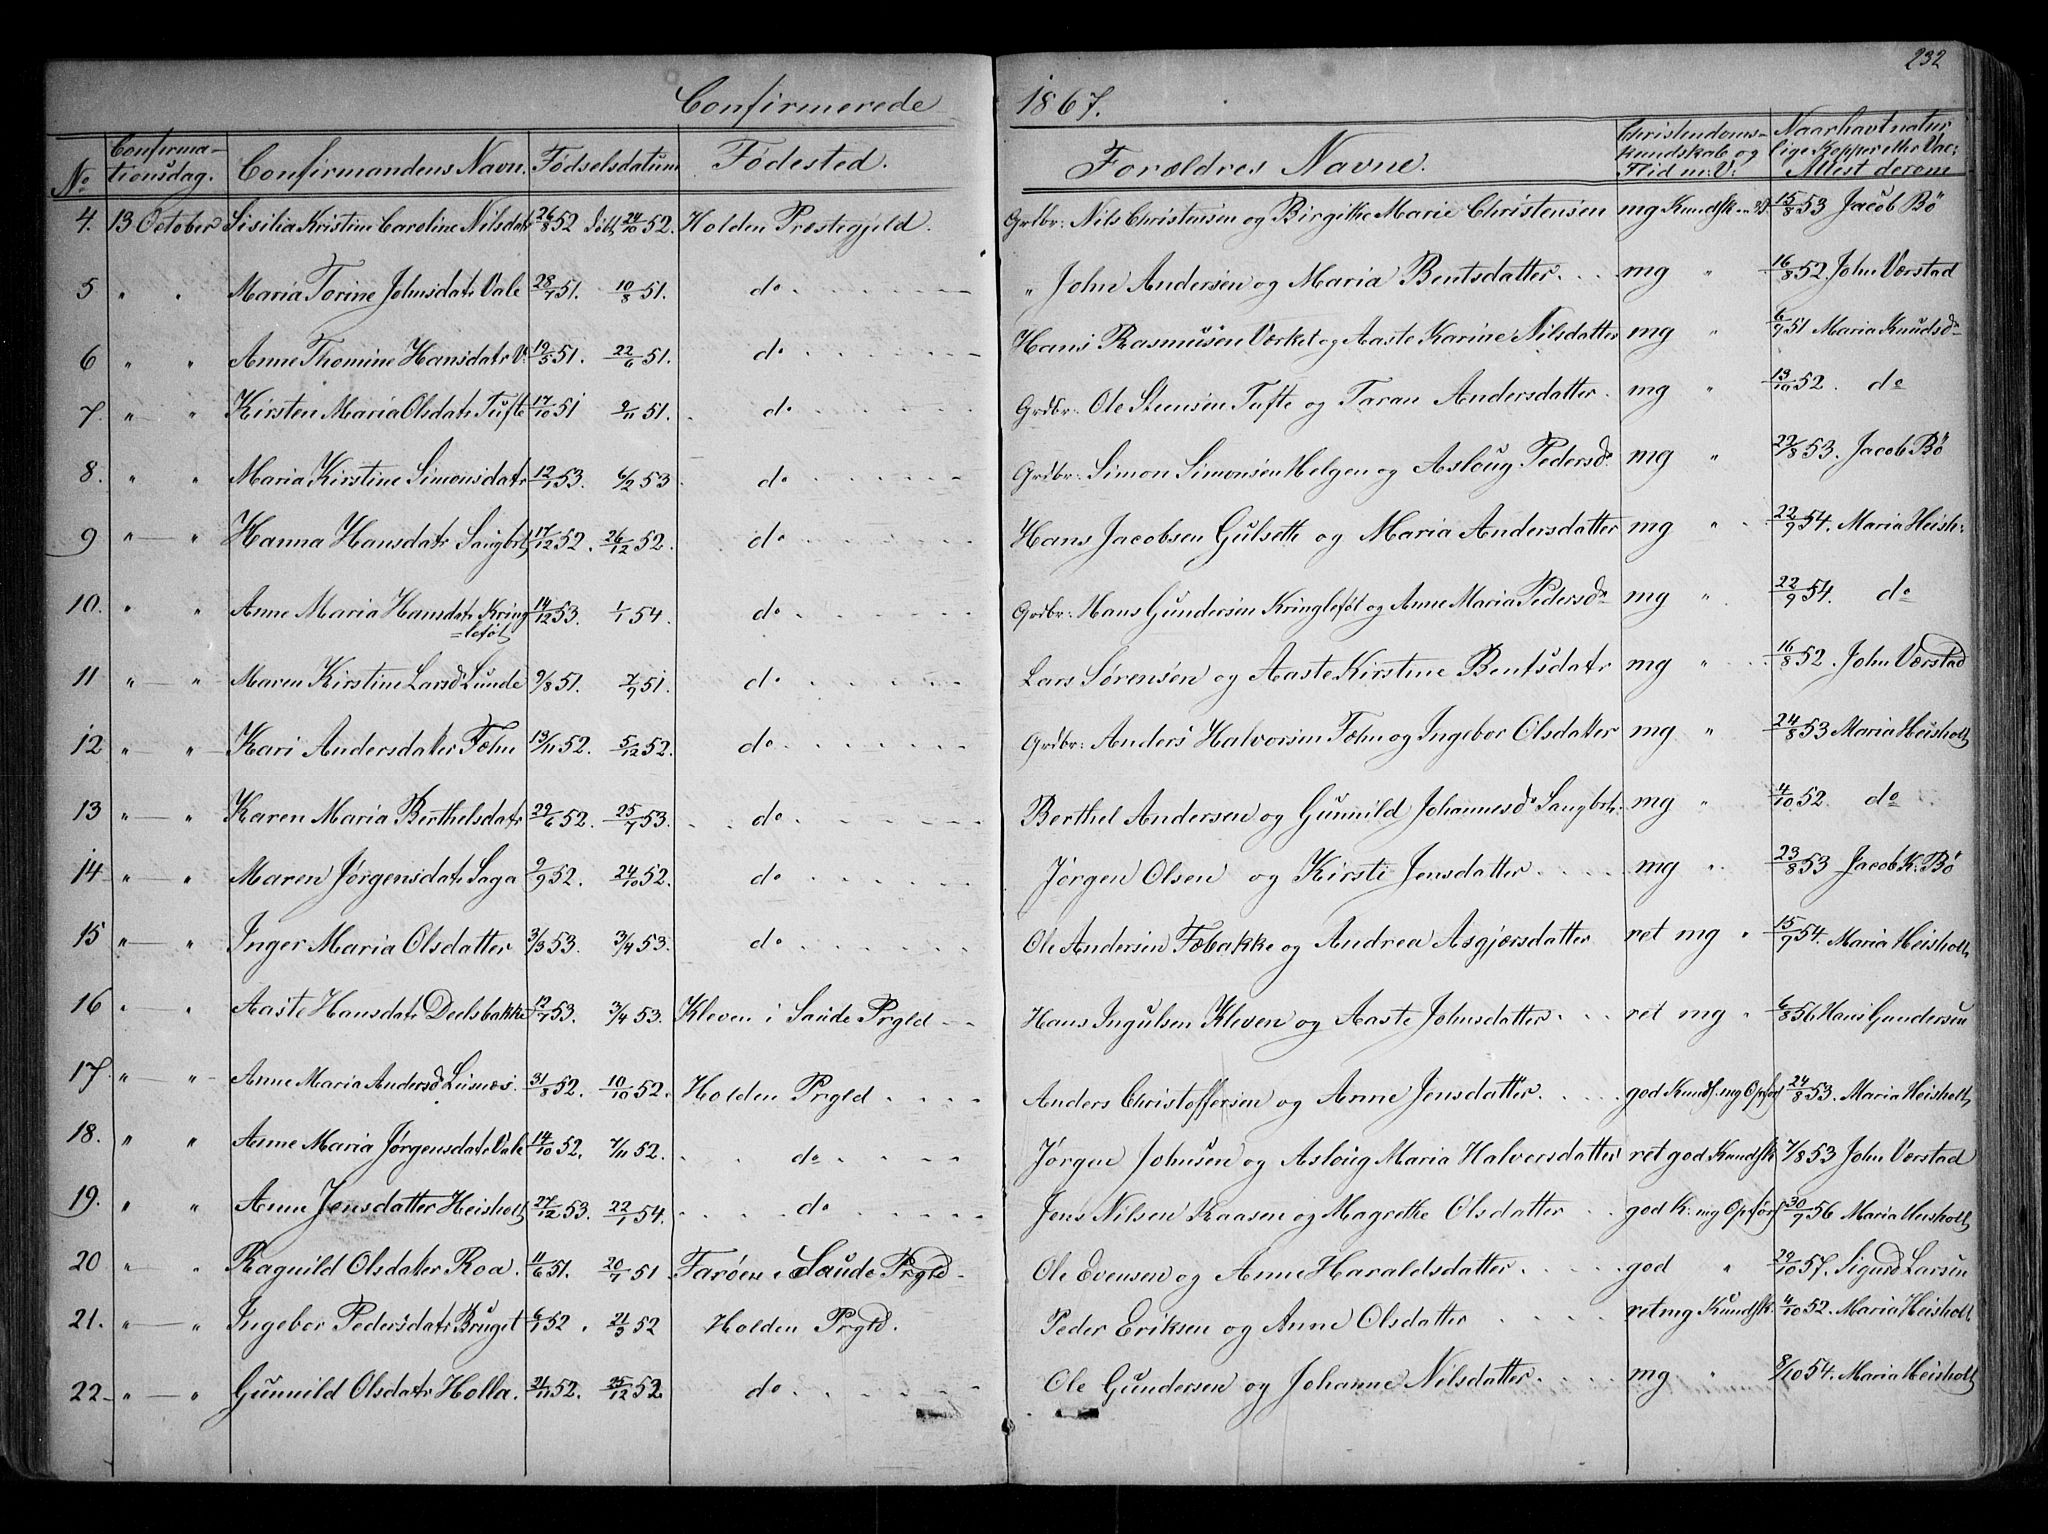 232
Confirmerede 1867.
No Confirmationsdag. Confirmandens Navn. Fødselsdatum Fødested. Forældres Navne. Christendomskundskab og Flid m: V: Naar havt naturlige Kopper eller Vac: Attest derom
4. 13 October Sisilia Kristine Caroline Nilsdatr 26/8 52 døbt 24/10 52. Holden Præstegjeld. Grdbr: Nils Christensen og Birgithe Marie Christensen mg Kundsk 15/8 53 Jacob Bö
5 " " Maria Torine Johnsdatr Vale 28/7 51. 10/8 51. do " John Andersen og Maria Bentsdatter mg " 16/8 52. John Værstad
6 " " Anne Thomine Hansdatr V. 19/5 51. 22/6 51. do Hans Rasmusen Værket og Aaste Karine Nilsdatter mg " 6/9 51 Maria Knudsd
7. " " Kirsten Maria Olsdatr Tufte 17/10 51 9/11 51. do Grdbr: Ole Steensen Tufte og Taran Andersdatter mg " 13/10 52. do
8. " " Maria Kirstine Simonsdatr 12/1 53. 6/2 53 do Grdbr: Simon Simonsen Helgen og Asloug Pedersd mg " 22/8 53. Jacob Bö
9 " " Hanna Hansdatr Sangbrt 17/12 52. 26/12 52. do Hans Jacobsen Gulseth og Maria Andersdatter mg " 22/9 54. Maria Heish:
10. " " Anne Maria Hansdatr Kringleföt 14/12 53. 1/1 54. do Grdbr: Hans Gundersen Kringleföt og Anne Maria Pedersd mg " 22/9 54. do
11 " " Maren Kirstine Larsd Lunde 9/8 51. 7/9 51. do Lars Sørensen og Aaste Kirstine Bentsdatr mg " 16/8 52. John Værstad
12 " " Kari Andersdatter Fæhn 13/11 52. 5/12 52. do Grdbr: Anders Halvorsen Fæhn og Ingebor Olsdatter mg " 24/8 53 Maria Heisholt
13 " " Karen Maria Berthelsdatr 29/6 52. 25/7 53. do Berthel Andersen og Gunnild Johannesd Sangbrt: mg " 4/10 52. do
14 " " Maren Jørgensdatr Saga 9/9 52. 24/10 52. do Jørgen Olsen og Kirsti Jensdatter mg " 23/8 53 Jacob K. Bö
15 " " Inger Maria Olsdatter 3/3 53. 3/4 53. do Ole Andersen Fæbakke og Andrea Asgjersdatter ret mg " 15/9 54. Maria Heisholt
16 " " Aaste Hansdatr Deelsbakke 12/1 53. 3/4 53. Kleven i Saude Prgld Hans Ingulsen Kleven og Aaste Johnsdatter ret mg " 6/8 56 Hans Gundersen
17. " " Anne Maria Andersd 31/8 52. 10/10 52. Holden Prgld Anders Christoffersen og Anne Jensdatter god Kundsk. mg Opførs 24/8 53. Maria Heisholt
18. " " Anne Maria Jørgensdatr Vale 14/10 52. 7/11 52. do Jørgen Johnsen og Asloug Maria Halversdatter ret god Kundsk 7/8 53 John Værstad
19. " " Anne Jensdatter Heisholt 27/12 53. 22/1 54. do Jens Nilsen Kaasen og Magrethe Olsdatter god K: mg Opførs 30/9 56 Maria Heisholt
20 " " Ragnild Olsdatter Roa. 11/6 51. 20/7 51 Farøen i Saude Prgld Ole Evensen og Anne Haraldsdatter god " 29/10 57. Sigurd Larsen
21. " " Ingebor Pedersdatr Bruget 6/1 52. 21/3 52 Holden Prgld. Peder Eriksen og Anne Olsdatter ret mg Kundsk. 4/10 52. Maria Heisholt
22 " " Gunnild Olsdatr Holla. 21/11 52. 25/12 52 do Ole Gundersen og Johanne Nilsdatter mg " 8/10 54. Maria Heisholt